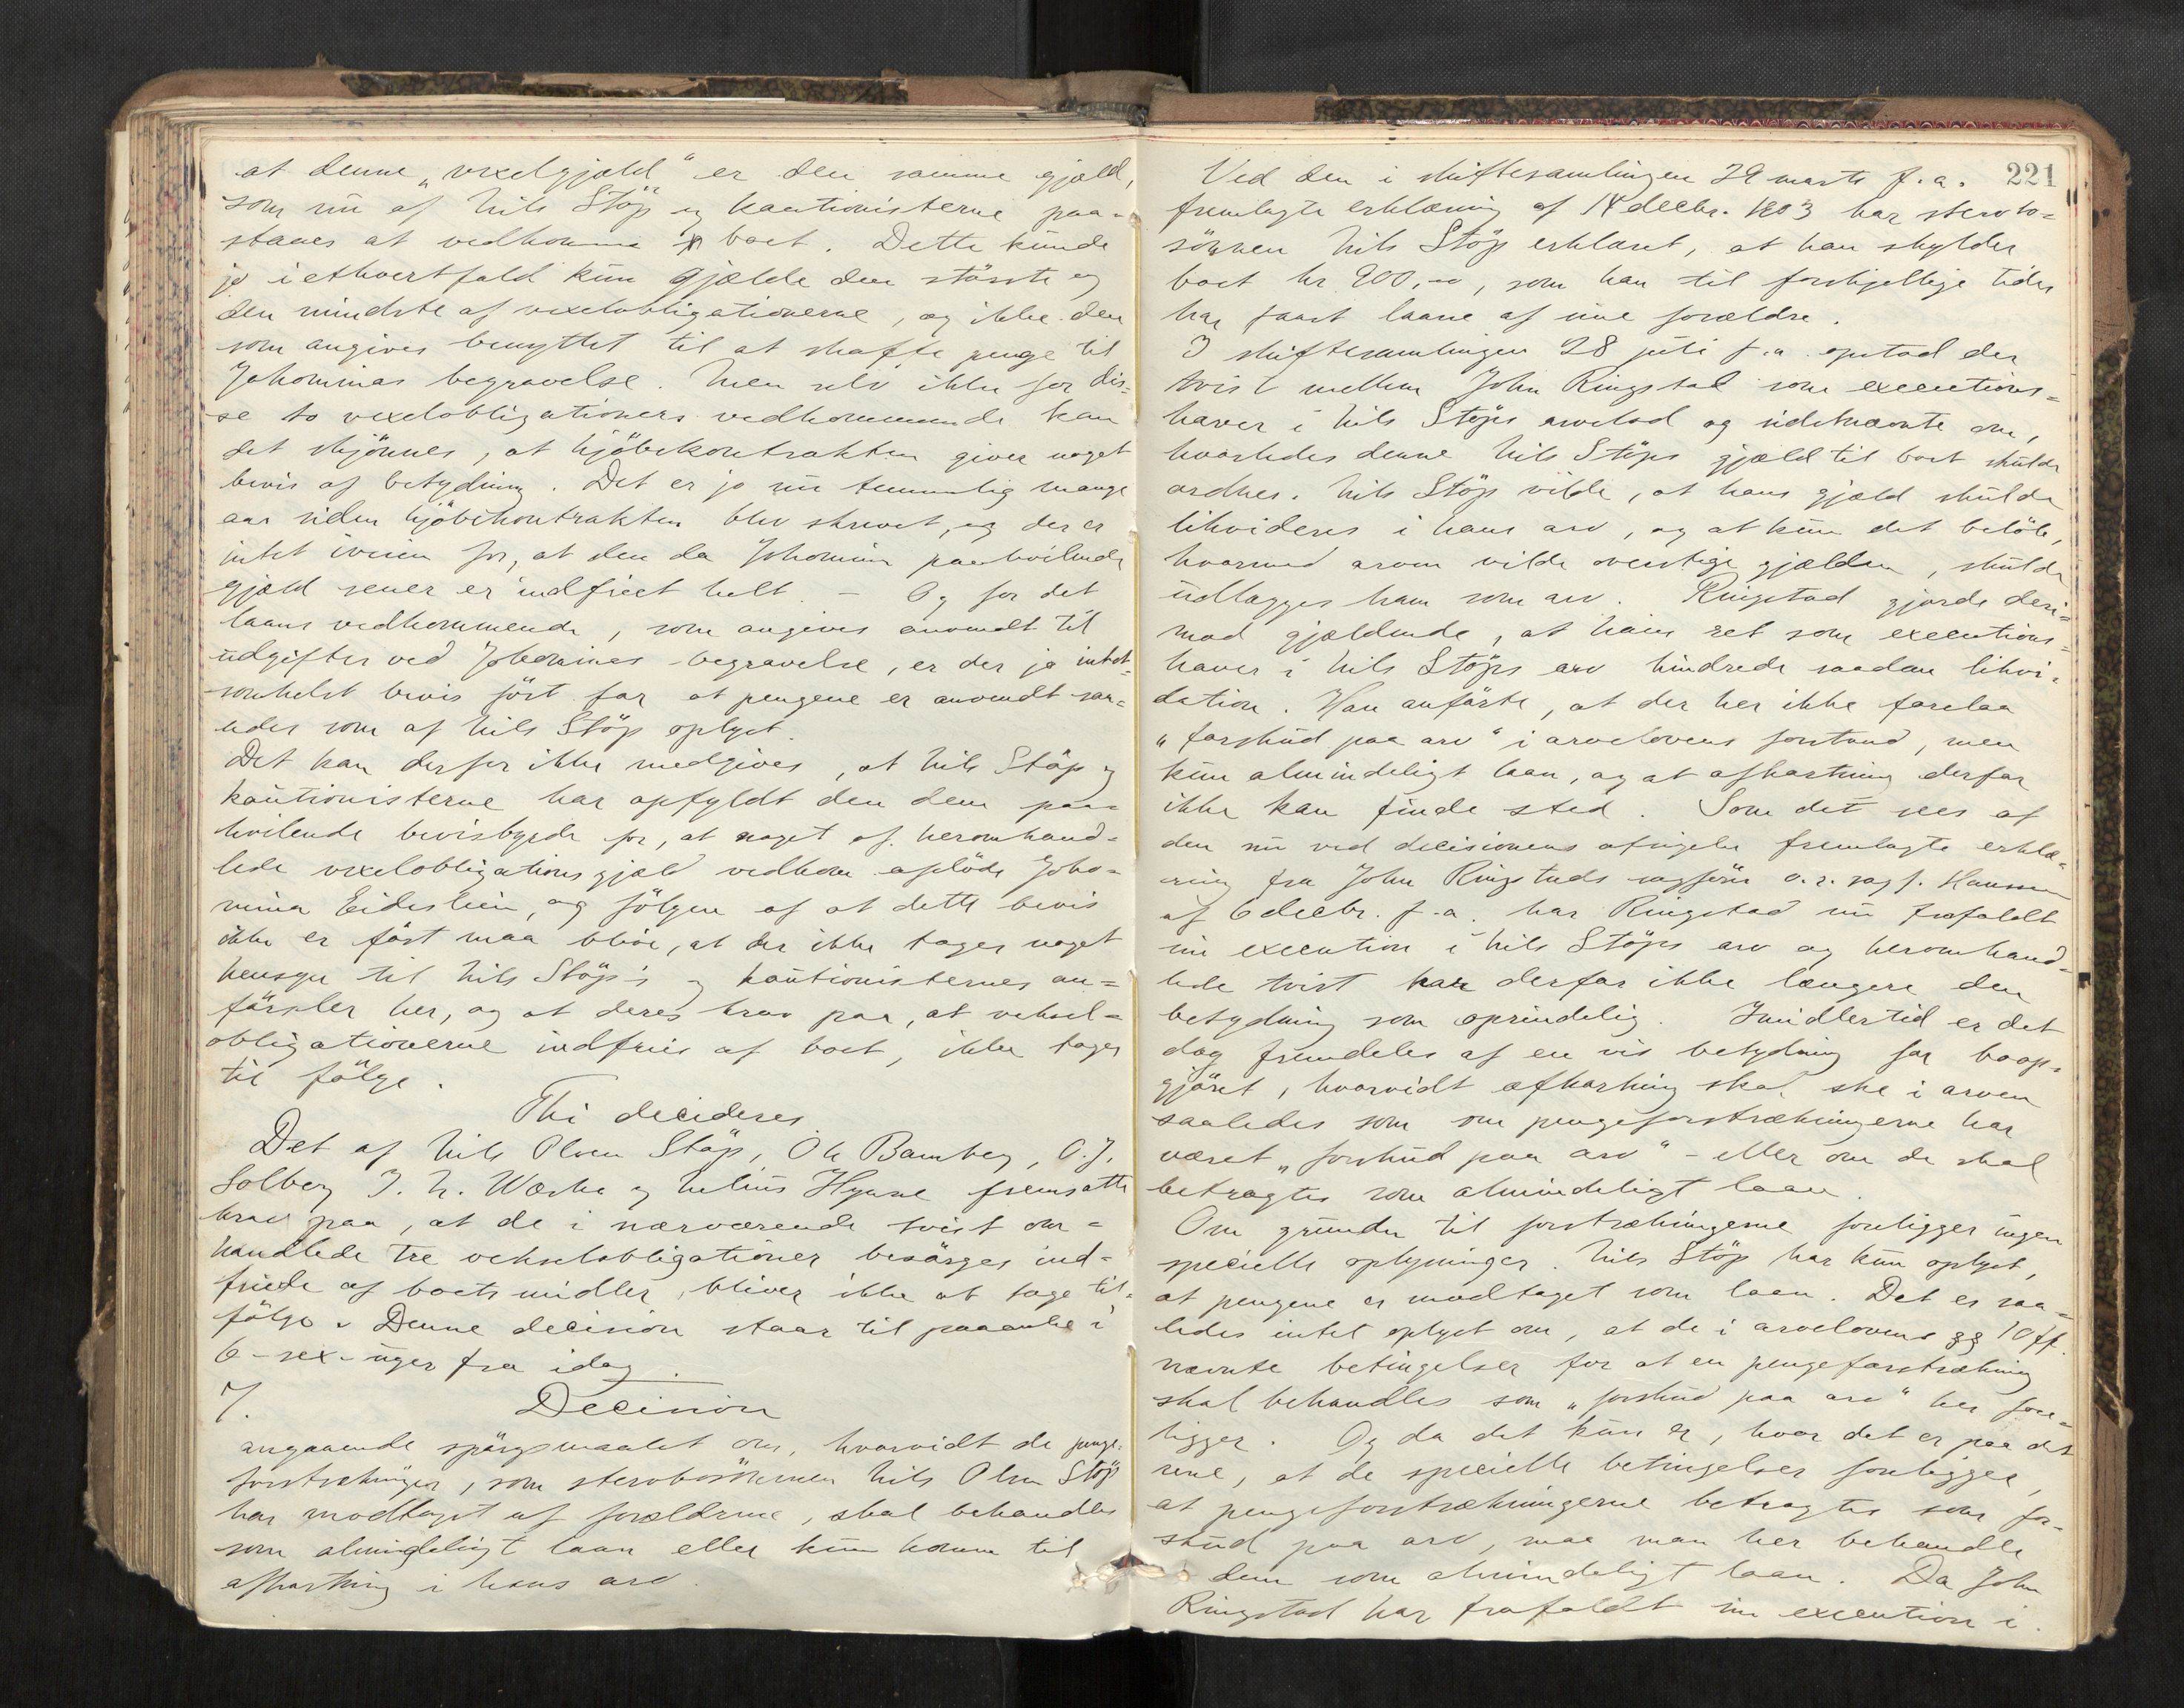 at denne „vexelgjæld" er den samme gjæld,
som nu af Nils Stöp og kautionisterne paa-
staaes at vedkomme boet. Dette kunde
jo i ethvertfald kun gjælde den störste og
den mindste af vexelobligationerne, og ikke den
som angives benyttet til at skaffe penge til
Johominas begravelse. Men selv ikke for dis-
se to vexelobligationers vedkommende kan
det skjönnes, at kjöbekontrakten giver noget
bevis af betydning. Det er jo nu temmelig mange
aar siden kjöbekontrakten blev skrevet, og der er
intet iveien for, at den da Johomina paahvilende
gjæld senere er indfriet helt. - Og for det
laans vedkommende, som angives anvendt til
udgifter ved Johominas begravelse, er der jo intet-
somhelst bevis fört for at pengene er anvendt saa-
ledes som af Nils Stöp oplyst.
Det kan derfor ikke medgives, at Nils Stöp og
kautionisterne har opfyldt den dem paa-
hvilende bevisbyrde for, at noget af heromhand-
lede vexelobligationsgjæld vedkom afdöde Joho-
mina Eideslein, og fölgen af at dette bevis
ikke er fört maa blive, at der ikke tages noget
hensyn til Nils Stöp's og kautionisternes an-
försler her, og at deres krav paa, at veksel-
obligationerne indfries af boet, ikke tages
til fölge.
Thi decideres
Det af Nils Olsen Stöp, Ole Bamberg, O. J.
Solberg J. N. Werke og Nelius Hynne fremsatte
krav paa, at de i nærværende tvist om-
handlede tre vekselobligationer besörges ind-
friede af boets midler, bliver ikke at tage til-
fölge. Denne decision staar til paaanke i
6 - sex - uger fra idag.
7. Decision
angaaende spörgsmaalet om, hvorvidt de penge-
forstrækninger, som stervbosönnen Nils Olsen Stöp
har modtaget af forældrene, skal behandles
som almindeligt laan eller kun komme til
afkortning i hans arv.
221
Ved den i skiftesamlingen 29 marts f.a.
fremlagte erklæring af 14 decbr. 1903 har stervbo-
sönnen Nils Stöp erklæret, at han skylder
boet kr 900,-, som han til forskjellige tider
har faaet laane af sine forældre.
I skiftesamlingen 28 juli f.a. opstod der
tvist mellem John Ringstad som executions-
haver i Nils Stöps arvelod og sidstnævnte om,
hvorledes denne Nils Stöps gjæld til boet skulde
ordnes. Nils Stöp vilde, at hans gjæld skulde
likvideres i hans arv, og at kun det belöb,
hvormed arven vilde overstige gjælden, skulde
udlægges ham som arv. Ringstad gjorde deri-
mod gjældende, at hans ret som executions-
haver i Nils Stöps arv hindrede saadan likvi-
dation. Han anförte, at der her ikke forelaa
„forskud paa arv" i arvelovens forstand, men
kun almindeligt laan, og at afkortning derfor
ikke kan finde sted. Som det sees af
den nu ved decisionens afsigelse fremlagte erklæ-
ring fra John Ringstads sagförer o.r.sagf. Hansen
af 6 decbr. f.a. har Ringstad nu frafaldt
sin execution i Nils Stöps arv og heromhand-
lede tvist har derfor ikke længere den
betydning som oprindelig. Imidlertid er det
dog fremdeles af en vis betydning for boop-
gjöret, hvorvidt afkortning skal ske i arven
saaledes som om pengeforstrækningerne har
været „forskud paa arv" - eller om de skal
betragtes som almindeligt laan.
Om grunden til forstrækningerne foreligger ingen
specielle oplysninger. Nils Stöp har kun oplyst,
at pengene er modtaget som laan. Det er saa-
ledes intet oplyst om, at de i arvelovens §§ 10 ff.
nævnte betingelser for at en pengeforstrækning
skal behandles som „forskud paa arv" her fore-
ligger. Og da det kun er, hvor det er paa det
rene, at de specielle betingelser foreligger,
at pengeforstrækningerne betragtes som for-
skud paa arv, maa man her behandle
dem som almindeligt laan. Da John
Ringstad har frafaldt sin execution i